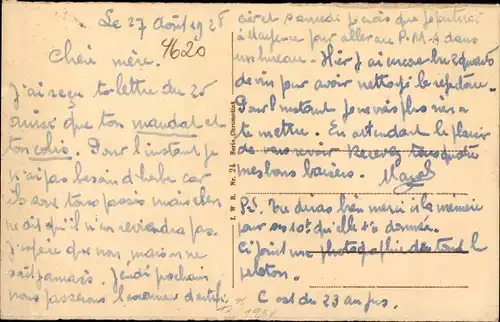 Le 27 Août 1928
4620
Chère mère.
J'ai reçu ta lettre du 25
ainsi que ton mandat et
ton colis. Pour l'instant je
n'ai pas besoin d'
ils sont tous passés mais
dit qu'il n'en reviendra pas.
J'espère que non, mais on ne
sait jamais. Jeudi prochain
nous passerons l'examen
et samedi je crois que
à pour aller au P.M. dans
un bureau. Hier j'ai eu les quarts
de vin pour avoir nettoyé le réfectoire.
Pour l'instant je ne vois plus rien à
te mettre. En attendant le plaisir
de vous revoir Recevez tous quatre
mes bons baisers. Marcel
P.S. Tu diras bien merci à la mémère
pour ses 10f qu'elle t'a donnés.
Ci joint une photographie de tout le
peloton.
C'est du 23 au jus.
I. W. B. Nr. 24 Serie „Chromotint"